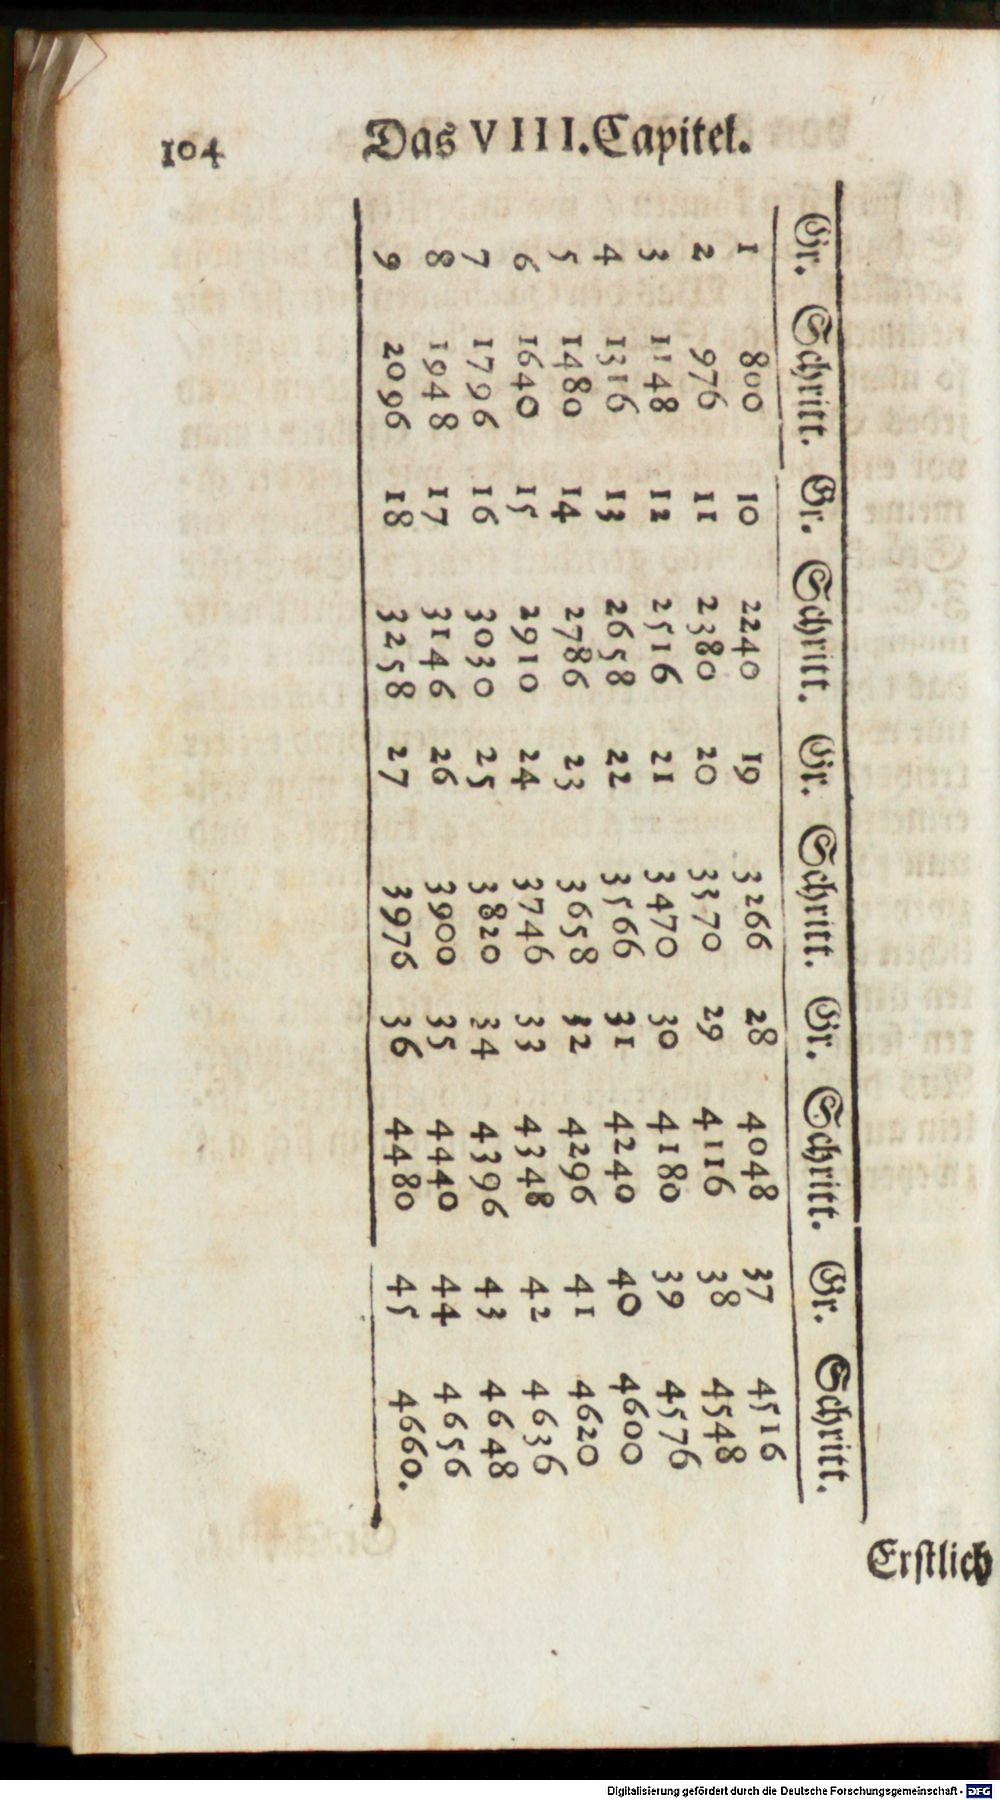 104 Das VIII. Capitel.
Gr. Schritt. Gr. Schritt. Gr. Schritt. Gr. Schritt. Gr. Schritt.
1 800 10 2240 19 3266 28 4048 37 4516
2 976 11 2380 20 3370 29 4116 38 4548
3 1148 12 2516 21 3470 30 4180 39 4576
4 1316 13 2658 22 3566 31 4240 40 4600
5 1480 14 2786 23 3658 32 4296 41 4620
6 1640 15 2910 24 3746 33 4348 42 4636
7 1796 16 3030 25 3820 34 4396 43 4648
8 1948 17 3146 26 3900 35 4440 44 4656
9 2096 18 3258 27 3976 36 4480 45 4660.
Erstlich
Digitalisierung gefördert durch die Deutsche Forschungsgemeinschaft - DFG